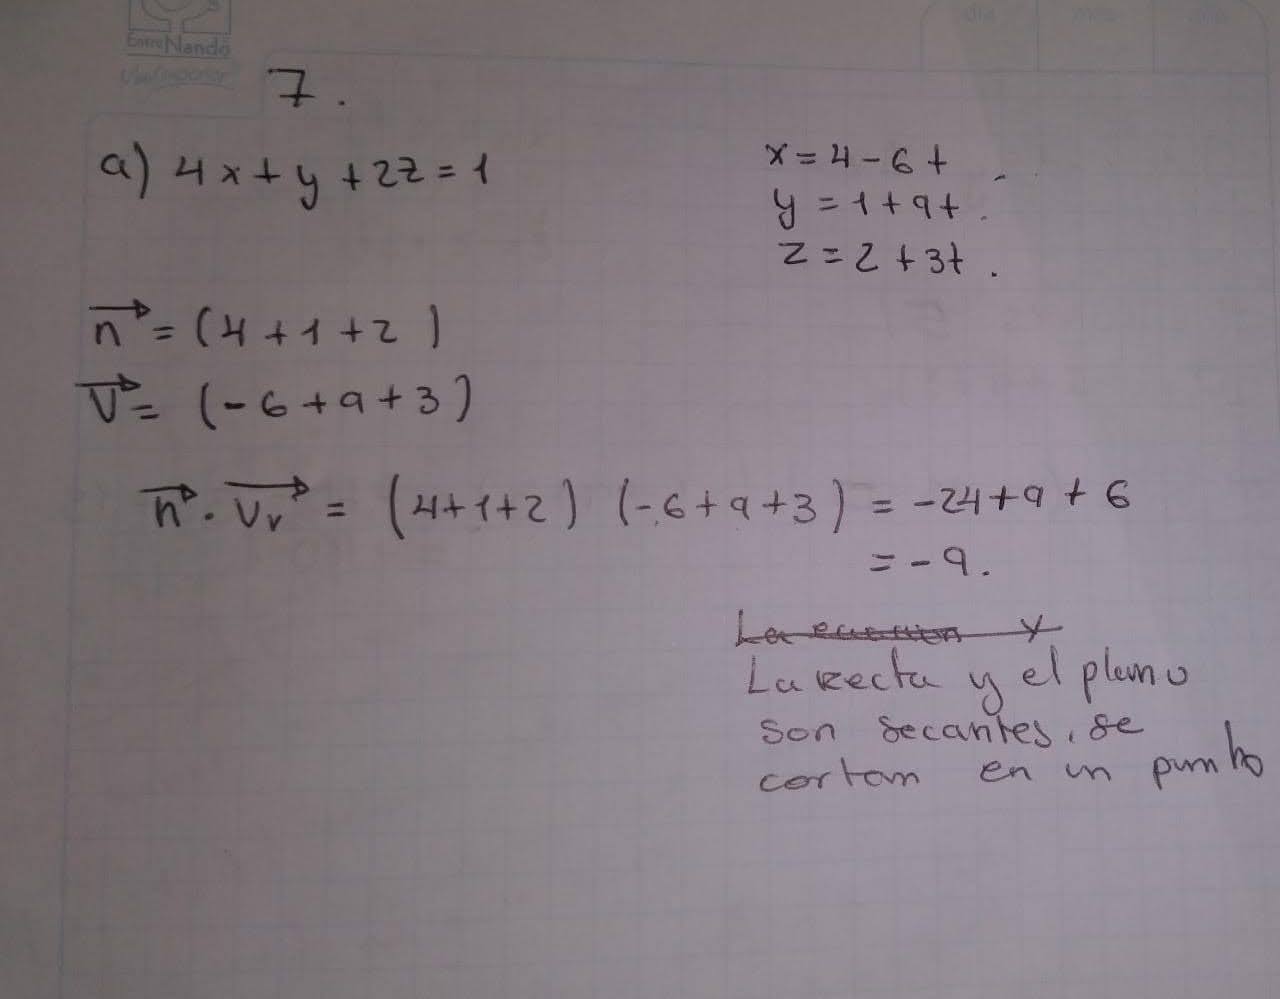 EntreNando
día mes año
7.
a) 4x + y + 2z = 1
x = 4 - 6t
y = 1 + 9t.
z = 2 + 3t.
n⃗ = (4 + 1 + 2)
V⃗ = (-6 + 9 + 3)
n⃗ · Vr⃗ = (4+1+2) (-6+9+3) = -24+9+6
= -9.
La ecuacion y
La recta y el plano
son secantes, se
cortan en un punto